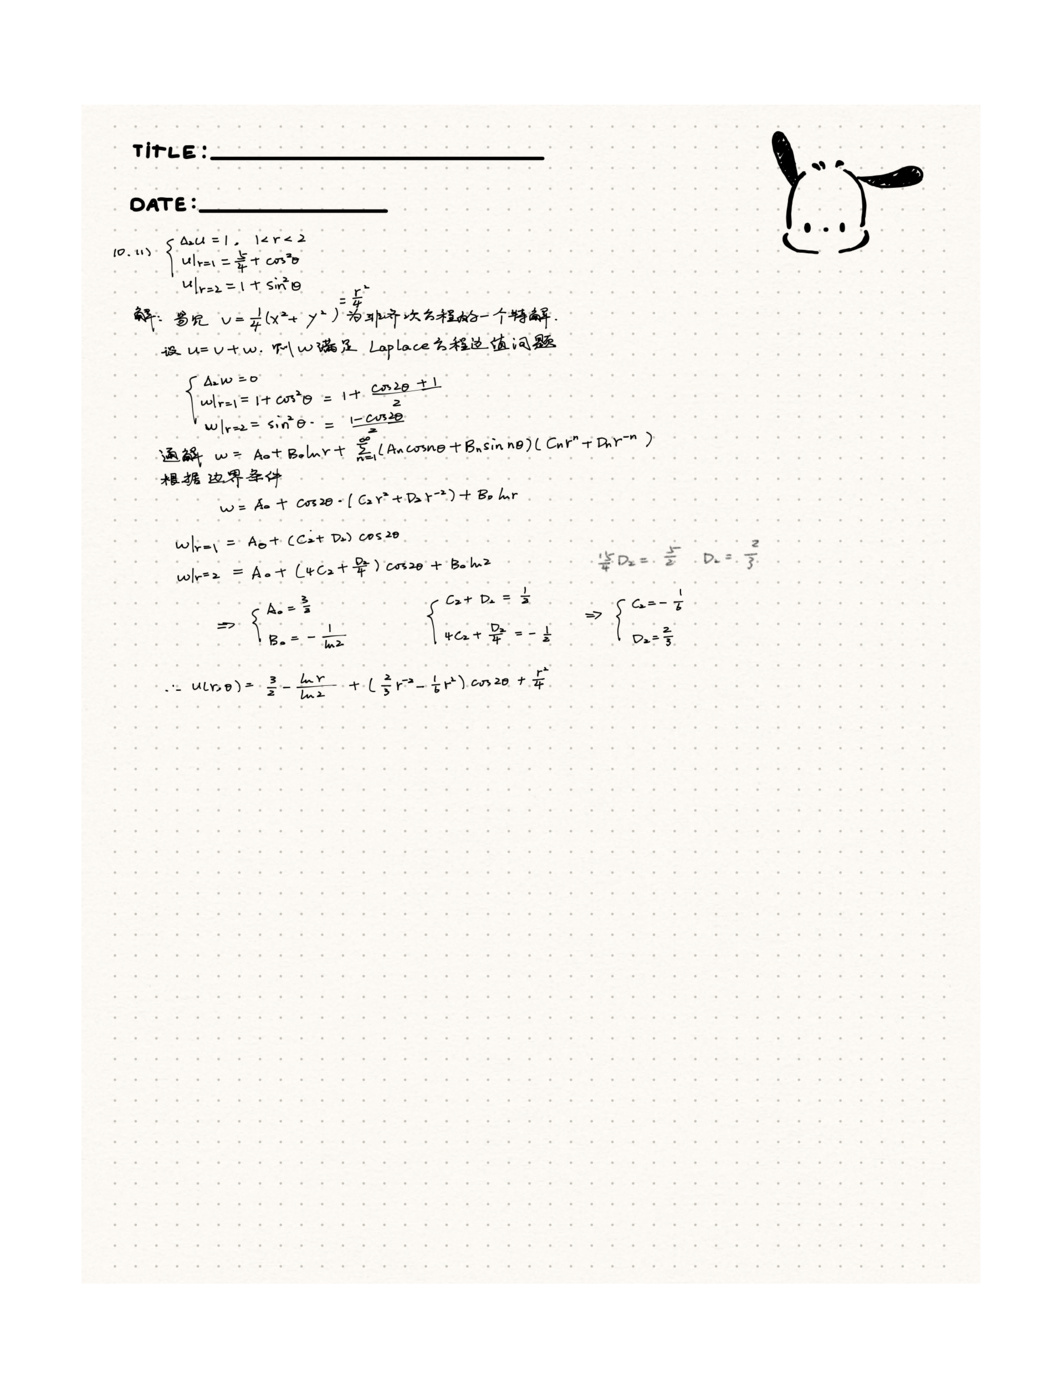 TITLE:
DATE:
10. (1) { Δ₂u = 1, 1<r<2
u|r=1 = 5/4 + cos²θ
u|r=2 = 1 + sin²θ
解: 易见 v = 1/4(x² + y²) = r²/4 为非齐次方程的一个特解.
设 u = v + w. 则 w 满足 Laplace 方程边值问题
{ Δ₂w = 0
w|r=1 = 1 + cos²θ = 1 + (cos2θ + 1)/2
w|r=2 = sin²θ. = (1 - cos2θ)/2
通解 w = A₀ + B₀lnr + ∑ₙ₌₁^∞ (Aₙcosnθ + Bₙsin nθ)(Cₙrⁿ + Dₙr⁻ⁿ)
根据边界条件
w = A₀ + cos2θ·(C₂r² + D₂r⁻²) + B₀ lnr
w|r=1 = A₀ + (C₂ + D₂) cos2θ
w|r=2 = A₀ + (4C₂ + D₂/4) cos2θ + B₀ ln2
15/4 D₂ = 5/2 D₂ = 2/3
⇒ { A₀ = 3/2 { C₂ + D₂ = 1/2 ⇒ { C₂ = -1/6
B₀ = -1/ln2 4C₂ + D₂/4 = -1/2 D₂ = 2/3
∴ u(r,θ) = 3/2 - lnr/ln2 + (2/3 r⁻² - 1/6 r²) cos2θ + r²/4